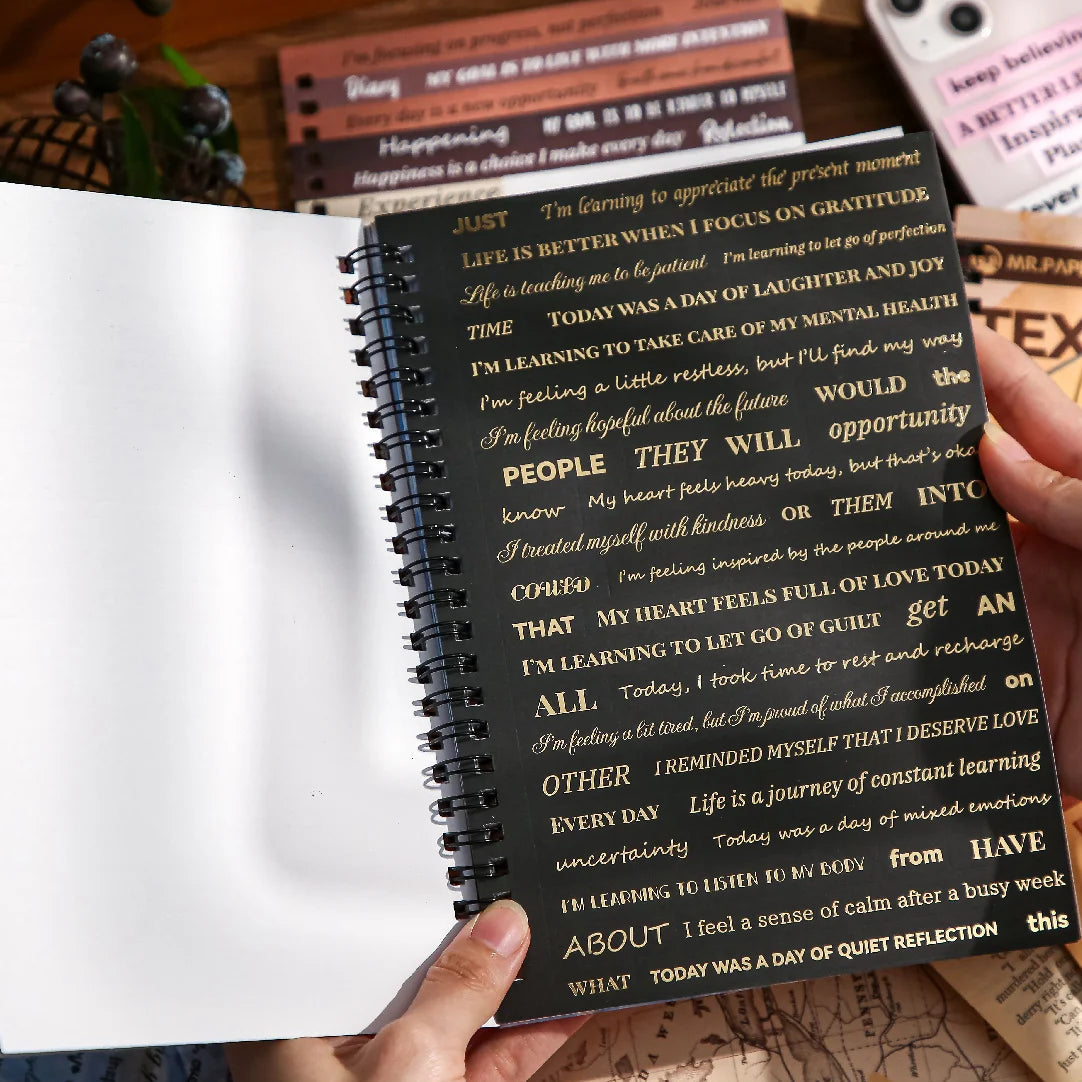 I'm focusing on progress, not perfection Journal
Diary MY GOAL IS TO LIVE WITH MORE INTENTION
Every day is a new opportunity
Happening MY GOAL IS TO BE KINDER TO MYSELF
Happiness is a choice I make every day Reflection
Experience
keep believing
A BETTER LI
Inspir
Pla
ever
MR.PAP
TEX
JUST I'm learning to appreciate the present moment
LIFE IS BETTER WHEN I FOCUS ON GRATITUDE
Life is teaching me to be patient I'm learning to let go of perfection
TIME TODAY WAS A DAY OF LAUGHTER AND JOY
I'M LEARNING TO TAKE CARE OF MY MENTAL HEALTH
I'm feeling a little restless, but I'll find my way
I'm feeling hopeful about the future WOULD the
PEOPLE THEY WILL opportunity
know My heart feels heavy today, but that's oka
I treated myself with kindness OR THEM INTO
COULD I'm feeling inspired by the people around me
THAT MY HEART FEELS FULL OF LOVE TODAY
I'M LEARNING TO LET GO OF GUILT get AN
ALL Today, I took time to rest and recharge
I'm feeling a bit tired, but I'm proud of what I accomplished on
OTHER I REMINDED MYSELF THAT I DESERVE LOVE
EVERY DAY Life is a journey of constant learning
uncertainty Today was a day of mixed emotions
I'M LEARNING TO LISTEN TO MY BODY from HAVE
ABOUT I feel a sense of calm after a busy week
WHAT TODAY WAS A DAY OF QUIET REFLECTION this